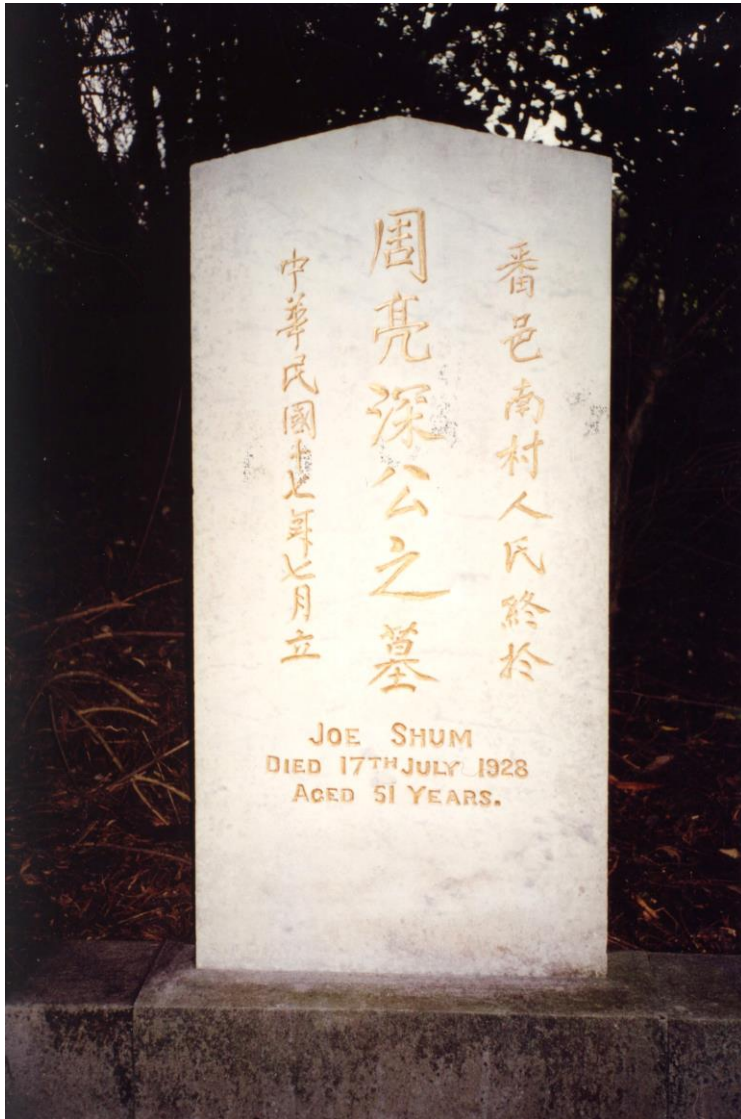 番邑南村人氏終於
周亮深公之墓
中華民國十七年七月立
JOE SHUM
DIED 17TH JULY 1928
AGED 51 YEARS.